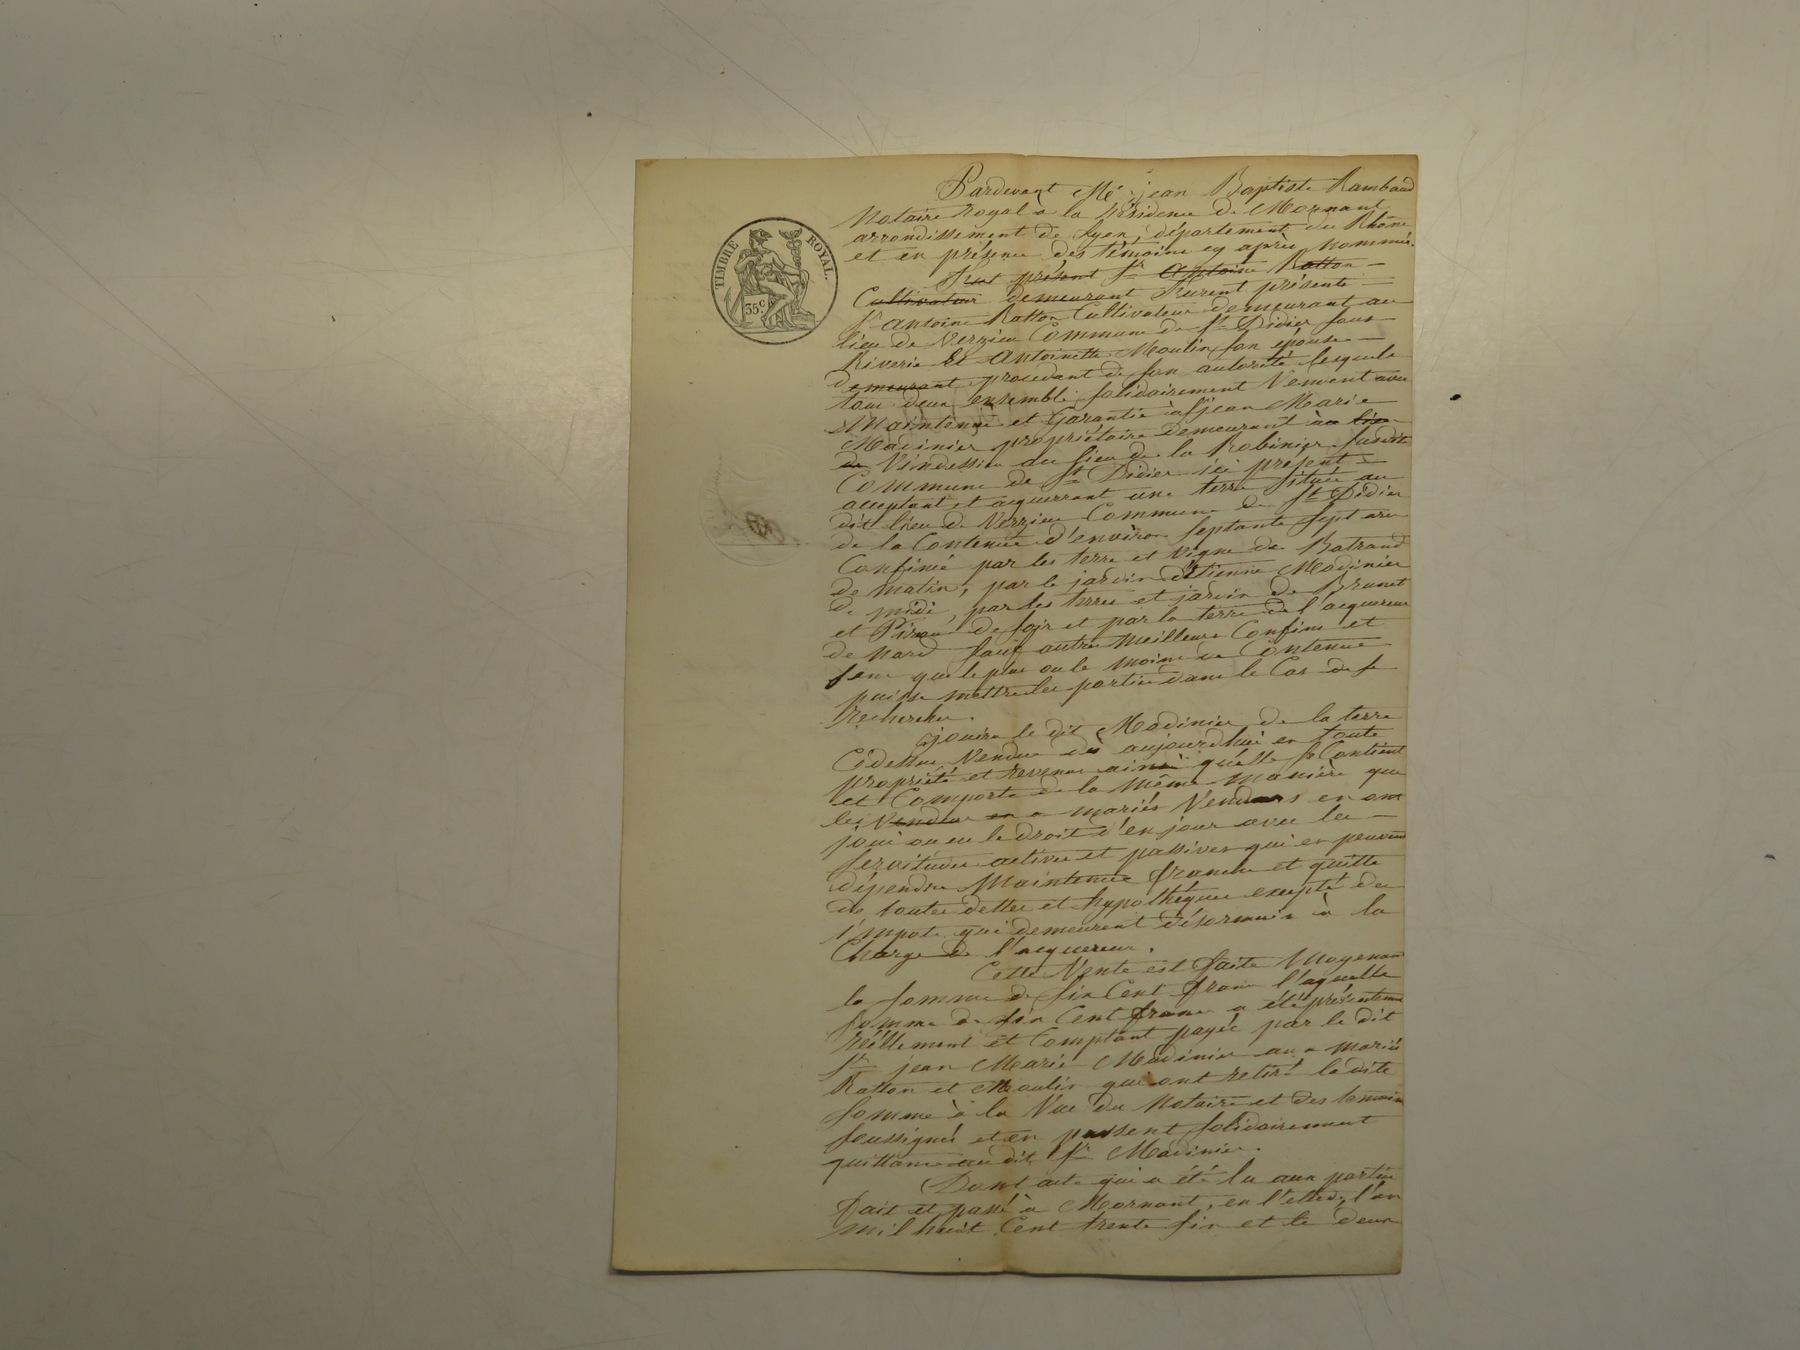 TIMBRE ROYAL.
35 c.
Pardevant Me jean Baptiste Rambaud
Notaire Royal à la Résidence de Mornant
arrondissement de Lyon, département du Rhône
et en présence des témoins cy après nommés.
Fut présent Sr Antoine Ratton
Cultivateur demeurant furent présents
Sr antoine Ratton Cultivateur demeurant au
lieu de Verzieu Commune de St Didier sous
Riverie Et Antoinette Moulin son épouse
demeurant procedant de son autorité lesquels
tous deux ensemble solidairement Vendent avec
Maintenue et Garantie à Sr jean Marie
Madinier propriétaire demeurant au lieu
de Vindessieu au lieu de la Robinier susdite
Commune de St Didier ici présent
acceptant et acquerrant une terre située au
dit lieu de Verzieu Commune de St Didier
de la Contenue d'environ septante sept ares
Confinée par les terre et vigne de Ratraud
de matin, par le jardin d'Etienne Madinier
de midi, par les terres et jardin de Brunet
et de soir et par la terre de l'acquereur
de nord sauf autres meilleurs Confins et
sans que le plus ou le moins de Contenue
puisse mettre les parties dans le Cas de se
rechercher.
jouira le dit Madinier de la terre
Cédessus Vendue dès aujourdhui en toute
propriété et revenus ainsi qu'elle se Contient
et Comporte de la même manière que
les Vendeur en mariés Vendeurs en ont
joui ou eu le droit d'en jouir avec les
servitudes actives et passives qui en peuvent
dépendre Maintenue franche et quitte
de toutes dettes et hypothèques excepté de
l'impots qui demeurent désormais à la
Charge de l'acquereur.
Cette Vente est faite Moyenant
la somme de six Cent francs l'aquelle
somme de six Cent francs a été présentement
réellement et Comptant payée par le dit
Sr jean Marie Madinier aux mariés
Ratton et Moulin qui ont retiré ladite
somme à la Vue du Notaire et des témoins
soussignés et en passent solidairement
quittance au dit Sr Madinier.
Dont acte qui a été lu aux parties
fait et passé à Mornant, en l'etude, l'an
mil huit Cent trente six et le deux